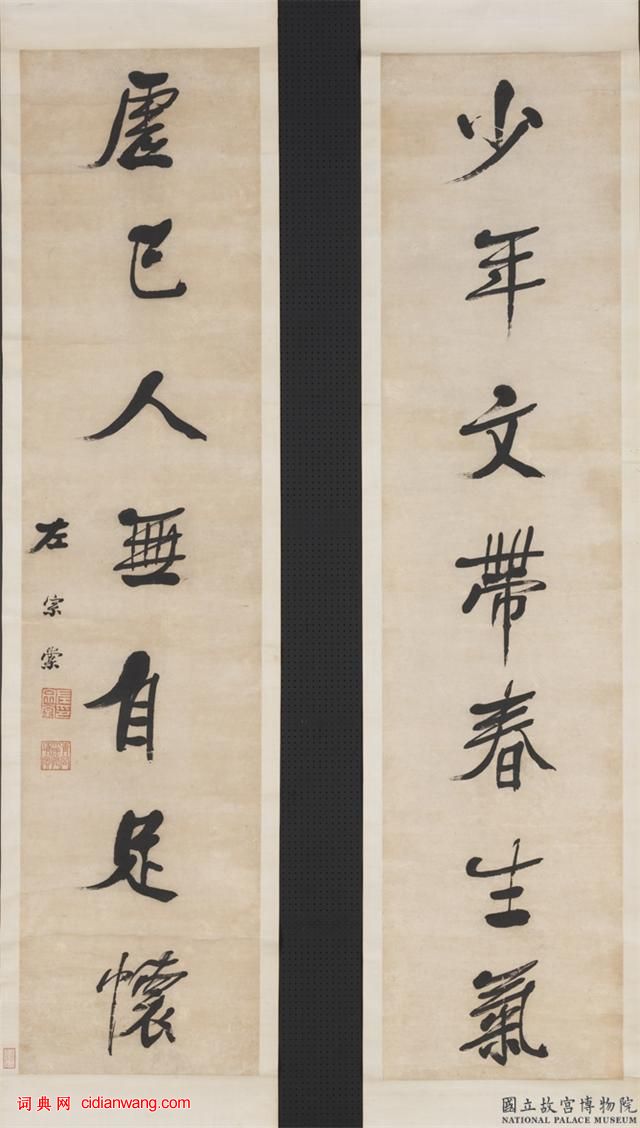 少年文帶春生氣
虛己人無自足懷
左宗棠
词典网 cidianwang.com
國立故宮博物院
NATIONAL PALACE MUSEUM